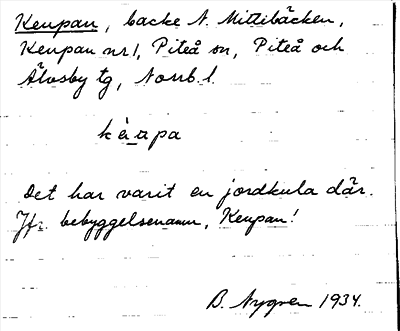 Keupan, backe N. Mittibäcken,
Keupan nr 1, Piteå sn, Piteå och
Älvsby tg, Norrb. l.
Det har varit en jordkula där.
Jfr. bebyggelsenamn, Keupan!
B. Nygren 1934.